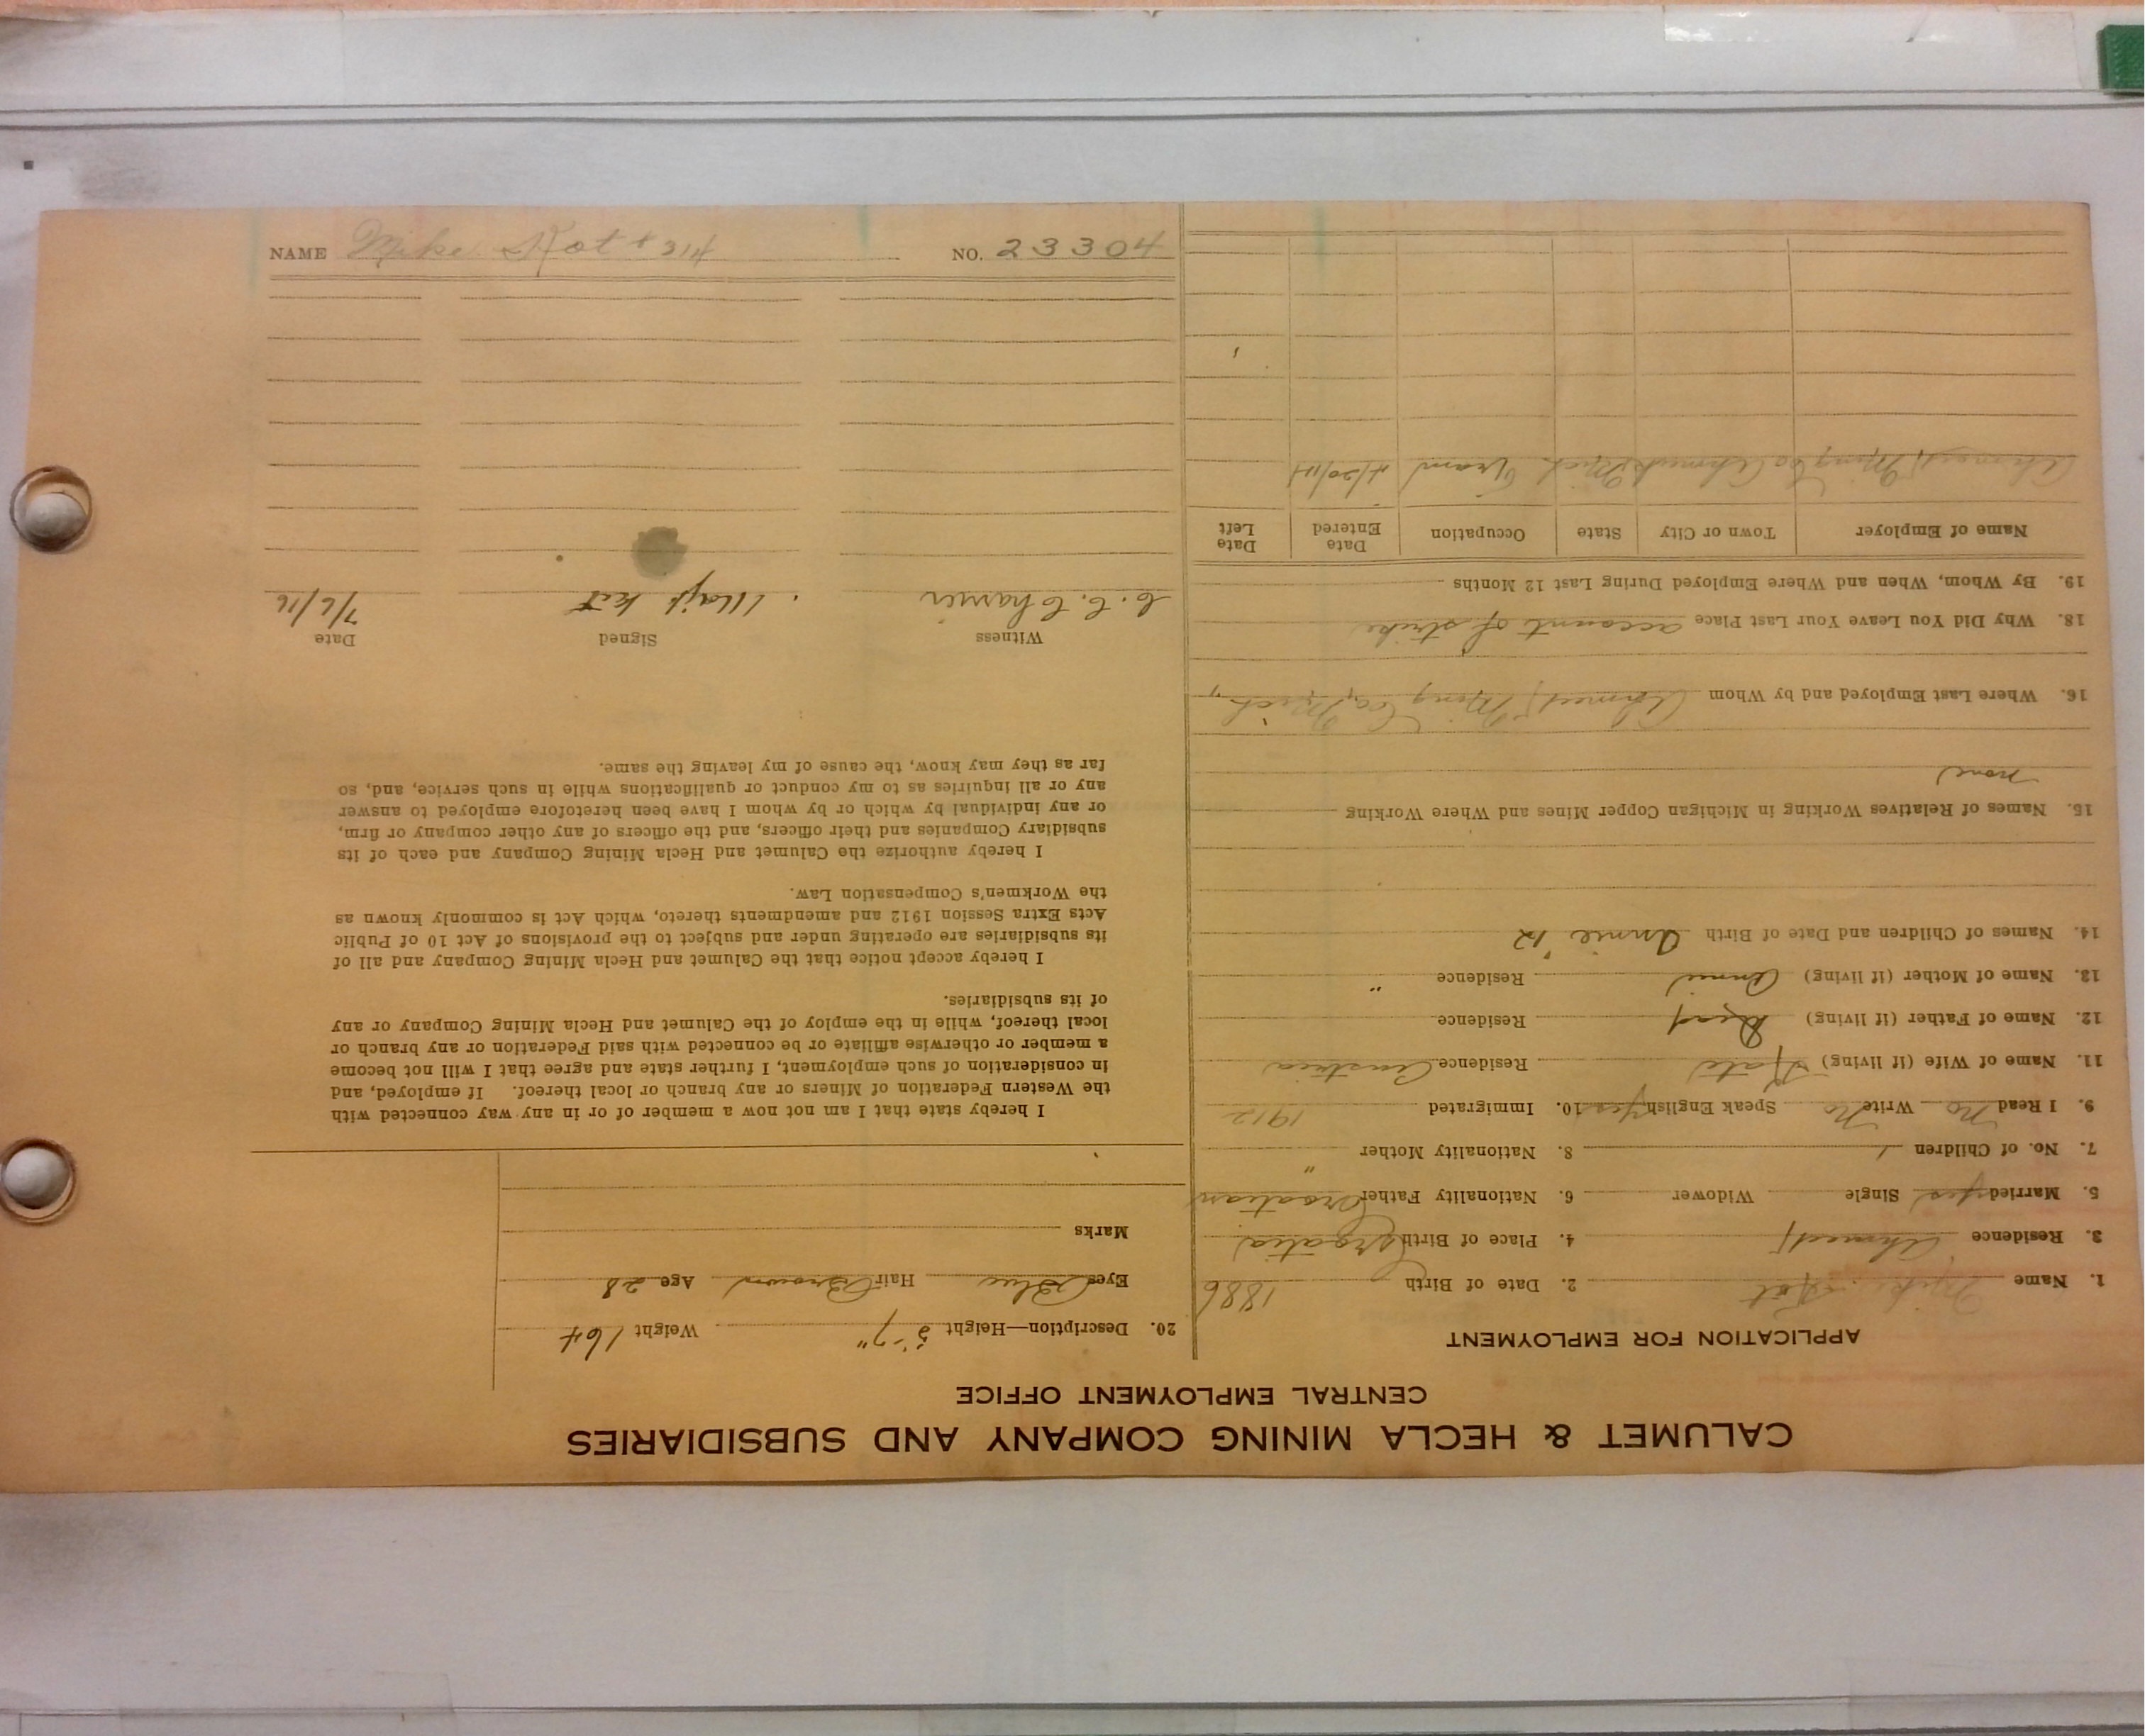 CALUMET & HECLA MINING COMPANY AND SUBSIDIARIES
CENTRAL EMPLOYMENT OFFICE
APPLICATION FOR EMPLOYMENT
1. Name Mike Kot 2. Date of Birth 1886
3. Residence Ahmeek 4. Place of Birth Croatia
5. Married yes Single Widower 6. Nationality Father Croatian
7. No. of Children 1 8. Nationality Mother "
9. I Read No Write No Speak English yes 10. Immigrated 1912
11. Name of Wife (if living) Kate Residence Austria
12. Name of Father (if living) Dead Residence
13. Name of Mother (if living) Annie Residence "
14. Names of Children and Date of Birth Annie '12
15. Names of Relatives Working in Michigan Copper Mines and Where Working
none
16. Where Last Employed and by Whom Ahmeek Ming Co, Mich
18. Why Did You Leave Your Last Place account of strike
19. By Whom, When and Where Employed During Last 12 Months
Name of Employer Town or City State Occupation Date Entered Date Left
Ahmeek Ming Co Ahmeek Mich Tram
20. Description—Height 5'-7" Weight 164
Eyes Blue Hair Brown Age 28
Marks
I hereby state that I am not now a member of or in any way connected with
the Western Federation of Miners or any branch or local thereof. If employed, and
in consideration of such employment, I further state and agree that I will not become
a member or otherwise affiliate or be connected with said Federation or any branch or
local thereof, while in the employ of the Calumet and Hecla Mining Company or any
of its subsidiaries.
I hereby accept notice that the Calumet and Hecla Mining Company and all of
its subsidiaries are operating under and subject to the provisions of Act 10 of Public
Acts Extra Session 1912 and amendments thereto, which Act is commonly known as
the Workmen's Compensation Law.
I hereby authorize the Calumet and Hecla Mining Company and each of its
subsidiary Companies and their officers, and the officers of any other company or firm,
or any individual by which or by whom I have been heretofore employed to answer
any or all inquiries as to my conduct or qualifications while in such service, and, so
far as they may know, the cause of my leaving the same.
Witness Signed Date
C. C. 7/6/16
NAME Mike Kot # 314 NO. 23304